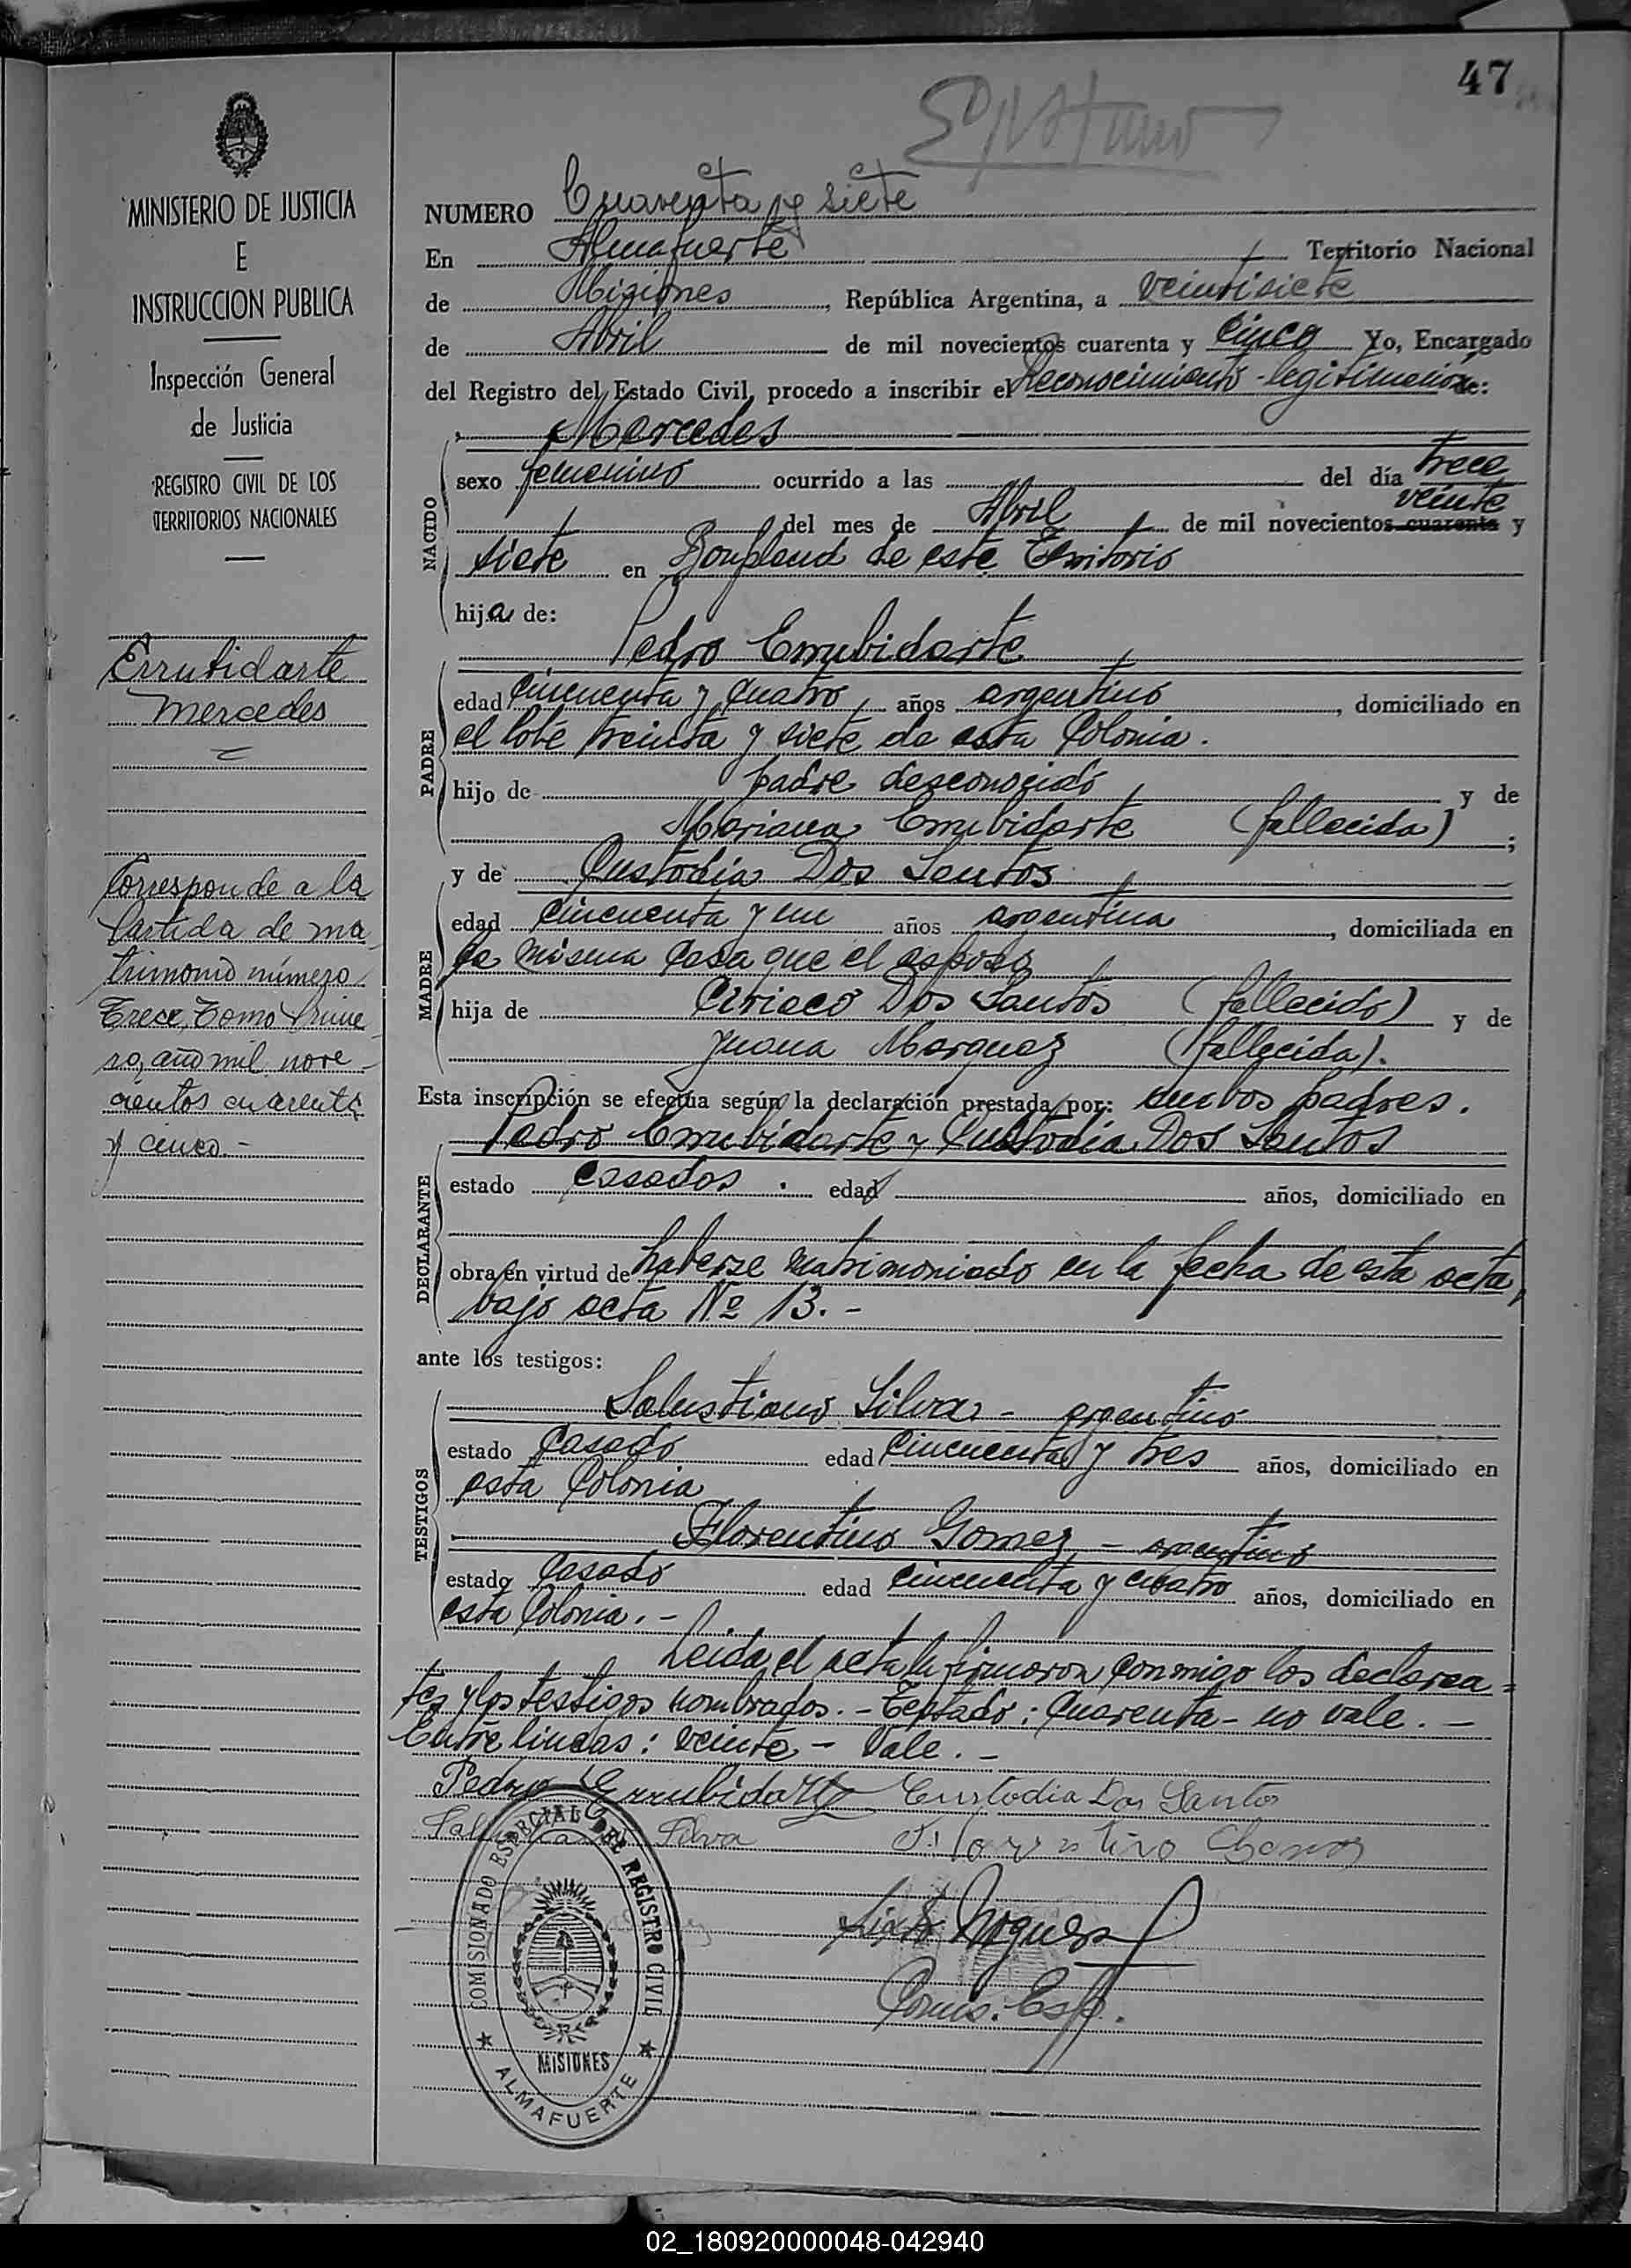 47
MINISTERIO DE JUSTICIA
E
INSTRUCCION PUBLICA
Inspección General
de Justicia
REGISTRO CIVIL DE LOS
TERRITORIOS NACIONALES
Errubidarte
Mercedes
Corresponde a la
Partida de ma
trimonio número
Trece, Tomo Prime
ro, año mil nove
cientos cuarenta
y cinco.-
NUMERO Cuarenta y siete
En Almafuerte Territorio Nacional
de Misiones, República Argentina, a veintisiete
de Abril de mil novecientos cuarenta y cinco Yo, Encargado
del Registro del Estado Civil, procedo a inscribir el Reconocimiento-legitimación de:
Mercedes
NACIDO
sexo femenino ocurrido a las del día trece
veinte
del mes de Abril de mil novecientos cuarenta y
siete en Bonpland de este Territorio
hija de:
Pedro Errubidarte
PADRE
edad cincuenta y cuatro años argentino, domiciliado en
el lote treinta y siete de esta Colonia.
hijo de padre desconocido y de
Mariana Errubidarte (fallecida);
y de Custodia Dos Santos
MADRE
edad cincuenta y un años argentina, domiciliada en
la misma casa que el esposo
hija de Ciriaco Dos Santos (fallecido) y de
Juana Marquez (fallecida).
Esta inscripción se efectúa según la declaración prestada por: ambos padres.
Pedro Errubidarte y Custodia Dos Santos
DECLARANTE
estado casados. edad años, domiciliado en
obra en virtud de haberse matrimoniado en la fecha de esta acta,
bajo acta Nº 13.-
ante los testigos:
TESTIGOS
Salustiano Silva - argentino
estado casado edad cincuenta y tres años, domiciliado en
esta Colonia
Florentino Gomez - argentino
estado casado edad cincuenta y cuatro años, domiciliado en
esta Colonia.-
Leida el acta la firmaron conmigo los declaran=
tes y los testigos nombrados.- Testado: cuarenta - no vale.-
Entre lineas: veinte - Vale.-
Pedro Errubidarte Custodia Dos Santos
Silva
COMISIONADO ESPECIAL DEL REGISTRO CIVIL
MISIONES
ALMAFUERTE
Comis. Esp.
02_180920000048-042940